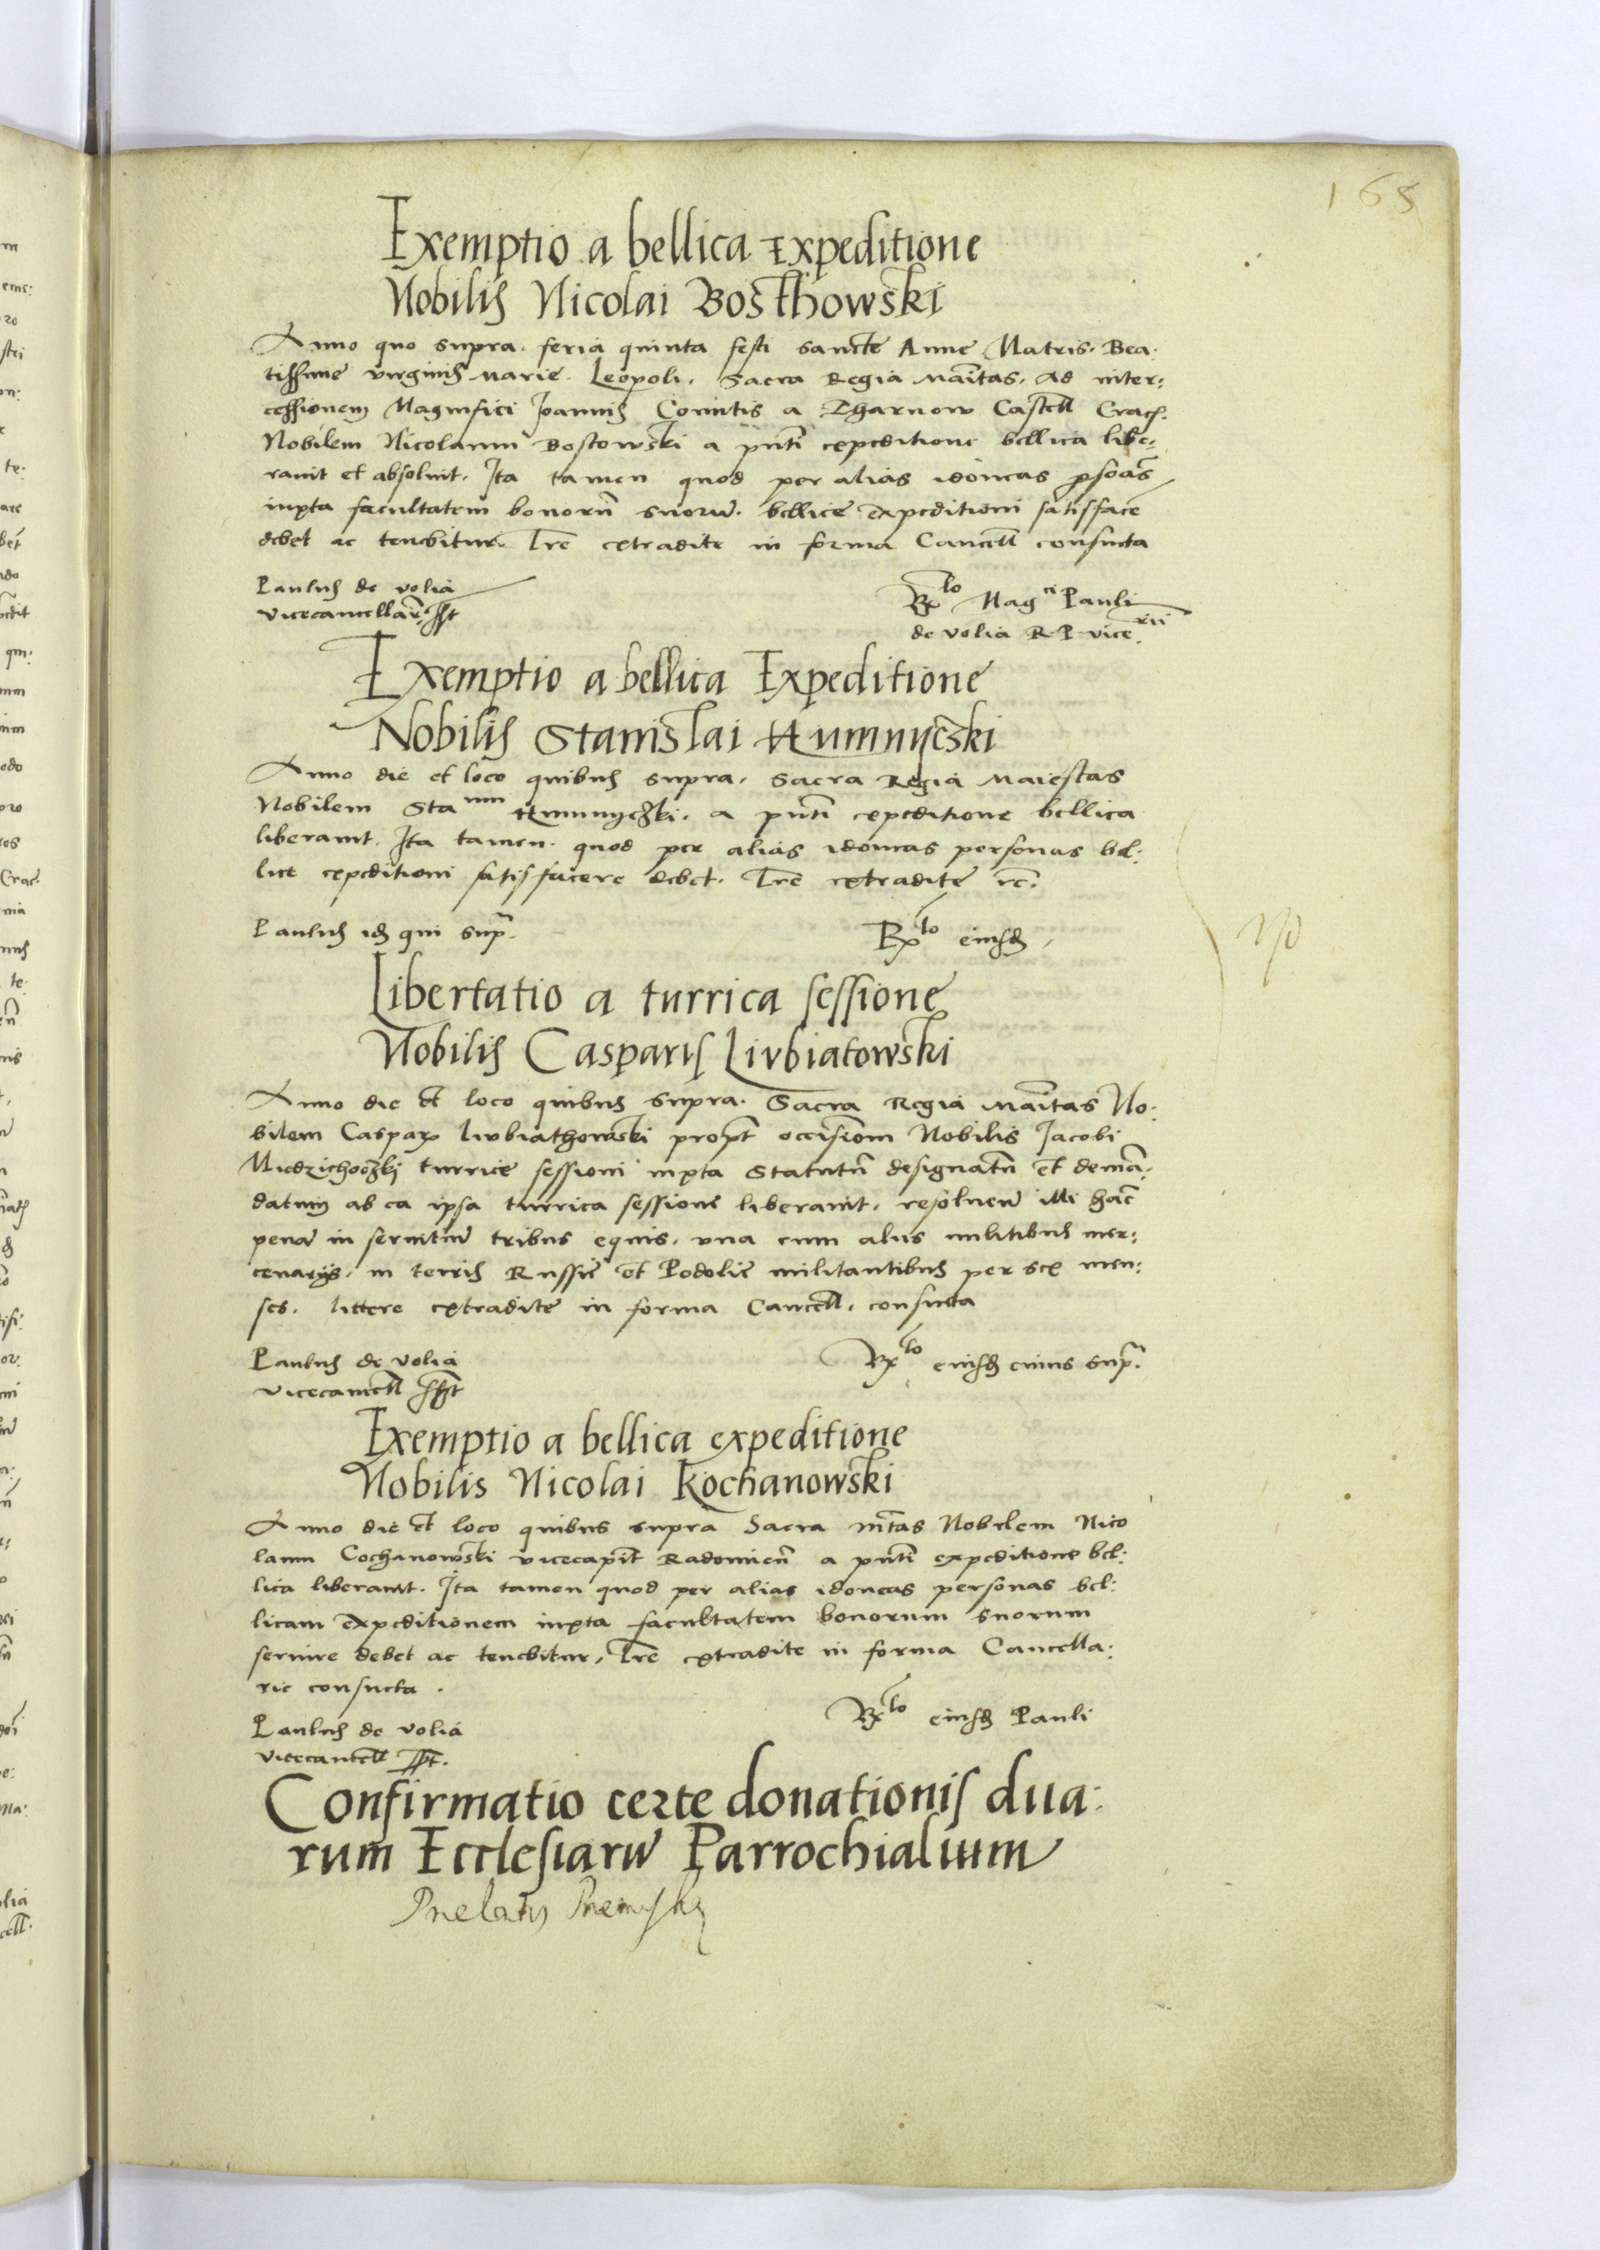 165
Exemptio a bellica Expeditione
Nobilis Nicolai Bosthowski
Anno quo supra. feria quinta festi sancte Anne Matris. Bea:
tissime virginis Marie. Leopoli. Sacra Regia Maitas. Ad inter:
cessionem Magnifici Joannis Comitis a Tharnow Castell Crac.
Nobilem Nicolaum Bostowski a pnti expeditione bellica libe:
ravit et absolvit. Ita tamen quod per alias idoneas psoas
iuxta facultatem bonoru suoru. bellice expeditioni satisface
debet ac tenebitur. Lre extradite in forma Cancell consueta
Paulus de volia
vicecancellar. sst
Rx to Mag ci Pauli
de volia R P vice rii
Exemptio a bellica Expeditione
Nobilis Stanislai Humnycski
Anno die et loco quibus supra. Sacra Regia Maiestas
Nobilem Sta um Humnyczki. a pnti expeditione bellica
liberavit. Ita tamen. quod per alias idoneas personas bel:
lice expeditioni satisfacere debet. Lre extradite rc.
Paulus ide qui sup.
Rx to eiusde
Libertatio a turrica sessione
Nobilis Casparis Liubiatowski
Anno die et loco quibus supra. Sacra Regia Maitas No:
bilem Caspar liubiathowski propt occisiom Nobilis Jacobi
turrice sessioni iuxta Statutu designatu et dema:
datum ab ea ipsa turrica sessione liberavit. resolven illi hac
pena in servitiu tribus equis. una cum aliis militibus mer:
cenariis. in terris Russie et Podolie militantibus per sex men:
ses. littere extradite in forma Cancell. consueta
Paulus de volia
vicecancell sst
Rx to eiusde cuius sup.
Exemptio a bellica expeditione
Nobilis Nicolai Kochanowski
Anno die et loco quibus supra Sacra mtas Nobilem Nico
laum Cochanowski vicecapit Radomien a pnti expeditione bel:
lica liberavit. Ita tamen quod per alias idoneas personas bel:
licam Expeditionem iuxta facultatem bonorum suorum
servire debet ac tenebitur. Lre extradite in forma Cancella:
rie consueta.
Paulus de volia
vicecancell sst.
Rx to eiusde Pauli
Confirmatio certe donationis dua:
rum Ecclesiaru Parrochialium